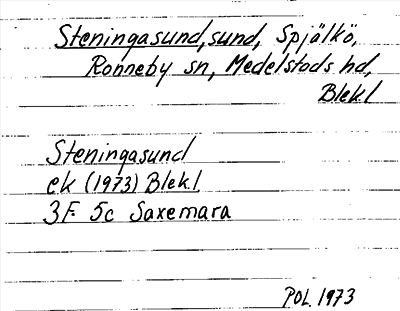 Steningasund, sund, Spjälkö,
Ronneby sn, Medelstads hd,
Blekl
Steningasund
ek (1973) Blekl
3F 5c Saxemara
POL. 1973